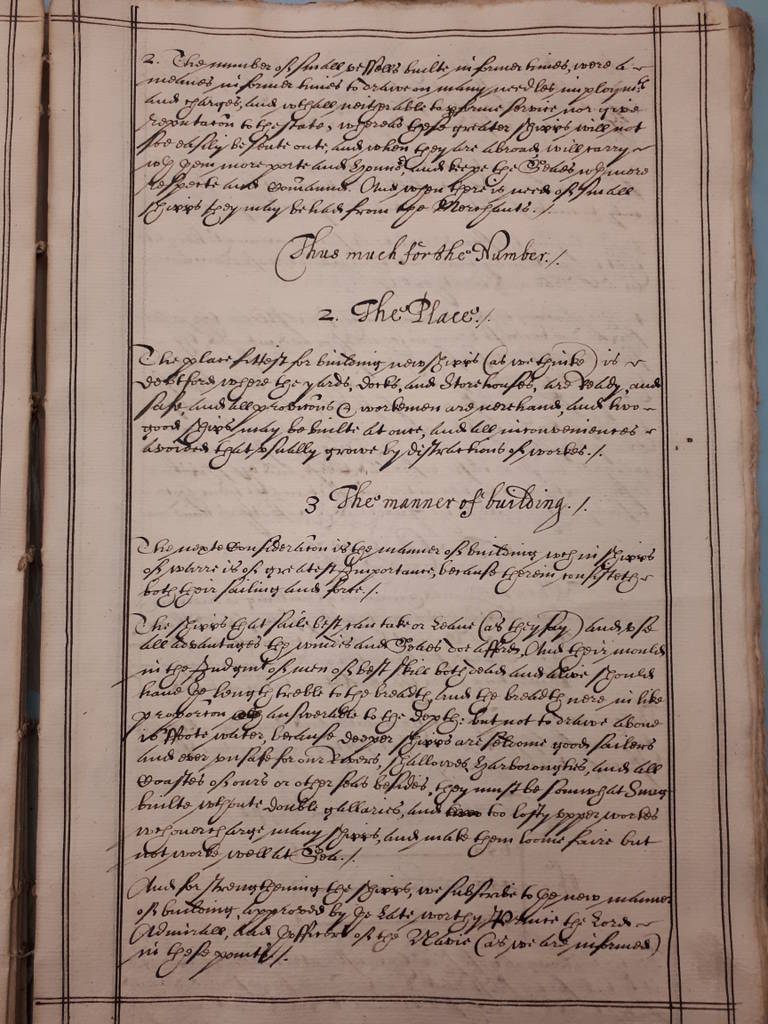 2. The number of small vessells builte in former times, were a
meanes in former times to drawe on many needles imploymts
and charges, and wthall neither able to pforme service nor give
reputacon to the state, whereas these greater shipps will not
soe easily be sente oute, and when they are abroad will carry
wth them more porte and honnor, and keepe the Seas wth more
respecte and Comaund. And when there is need of small
shipps they may be had from the Merchants./.
Thus much for the Number./
2. The Place./.
The place fittest for building new shipps (as we thinke) is
Debtford where the yards, docks, and Storehouses, are ready, and
safe, and all provitions & workemen are nere hand, and two
good ships may be builte at once, and all inconveniences
avoided that usually growe by distractions of workes./.
3 The manner of building./
The nexte Consideracon is the manner of building wch in shipps
of warre is of greatest Importance, because therein consisteth
both their sailing and force./.
The shipps that saile best, can take or leave (as they say) and use
all advantages the windes and Seaes doe afford, And their mould
in the Judgmt of men of best skill both dead and alive should
have ye length treble to the breadth, and the breadth nere in like
proporcon answerable to the depth: but not to drawe above
16 ffoote water, because deeper shipps are seldome good sailers
and ever unsafe for our Rivers, shallowe Harboroughes, and all
Coastes of ours or other seas besides, they must be somwhat snug
builte wthoute double gallaries, and too lofty upper workes
wch overcharge many shipps, and make them loome faire but
not worke well at Sea./.
And for strengthening the shipps, we subscribe to ye new manner
of building, approved by ye late, worthy Prince the Lord
Admirall, and Officers of the Navie (as we are informed)
in these points./.